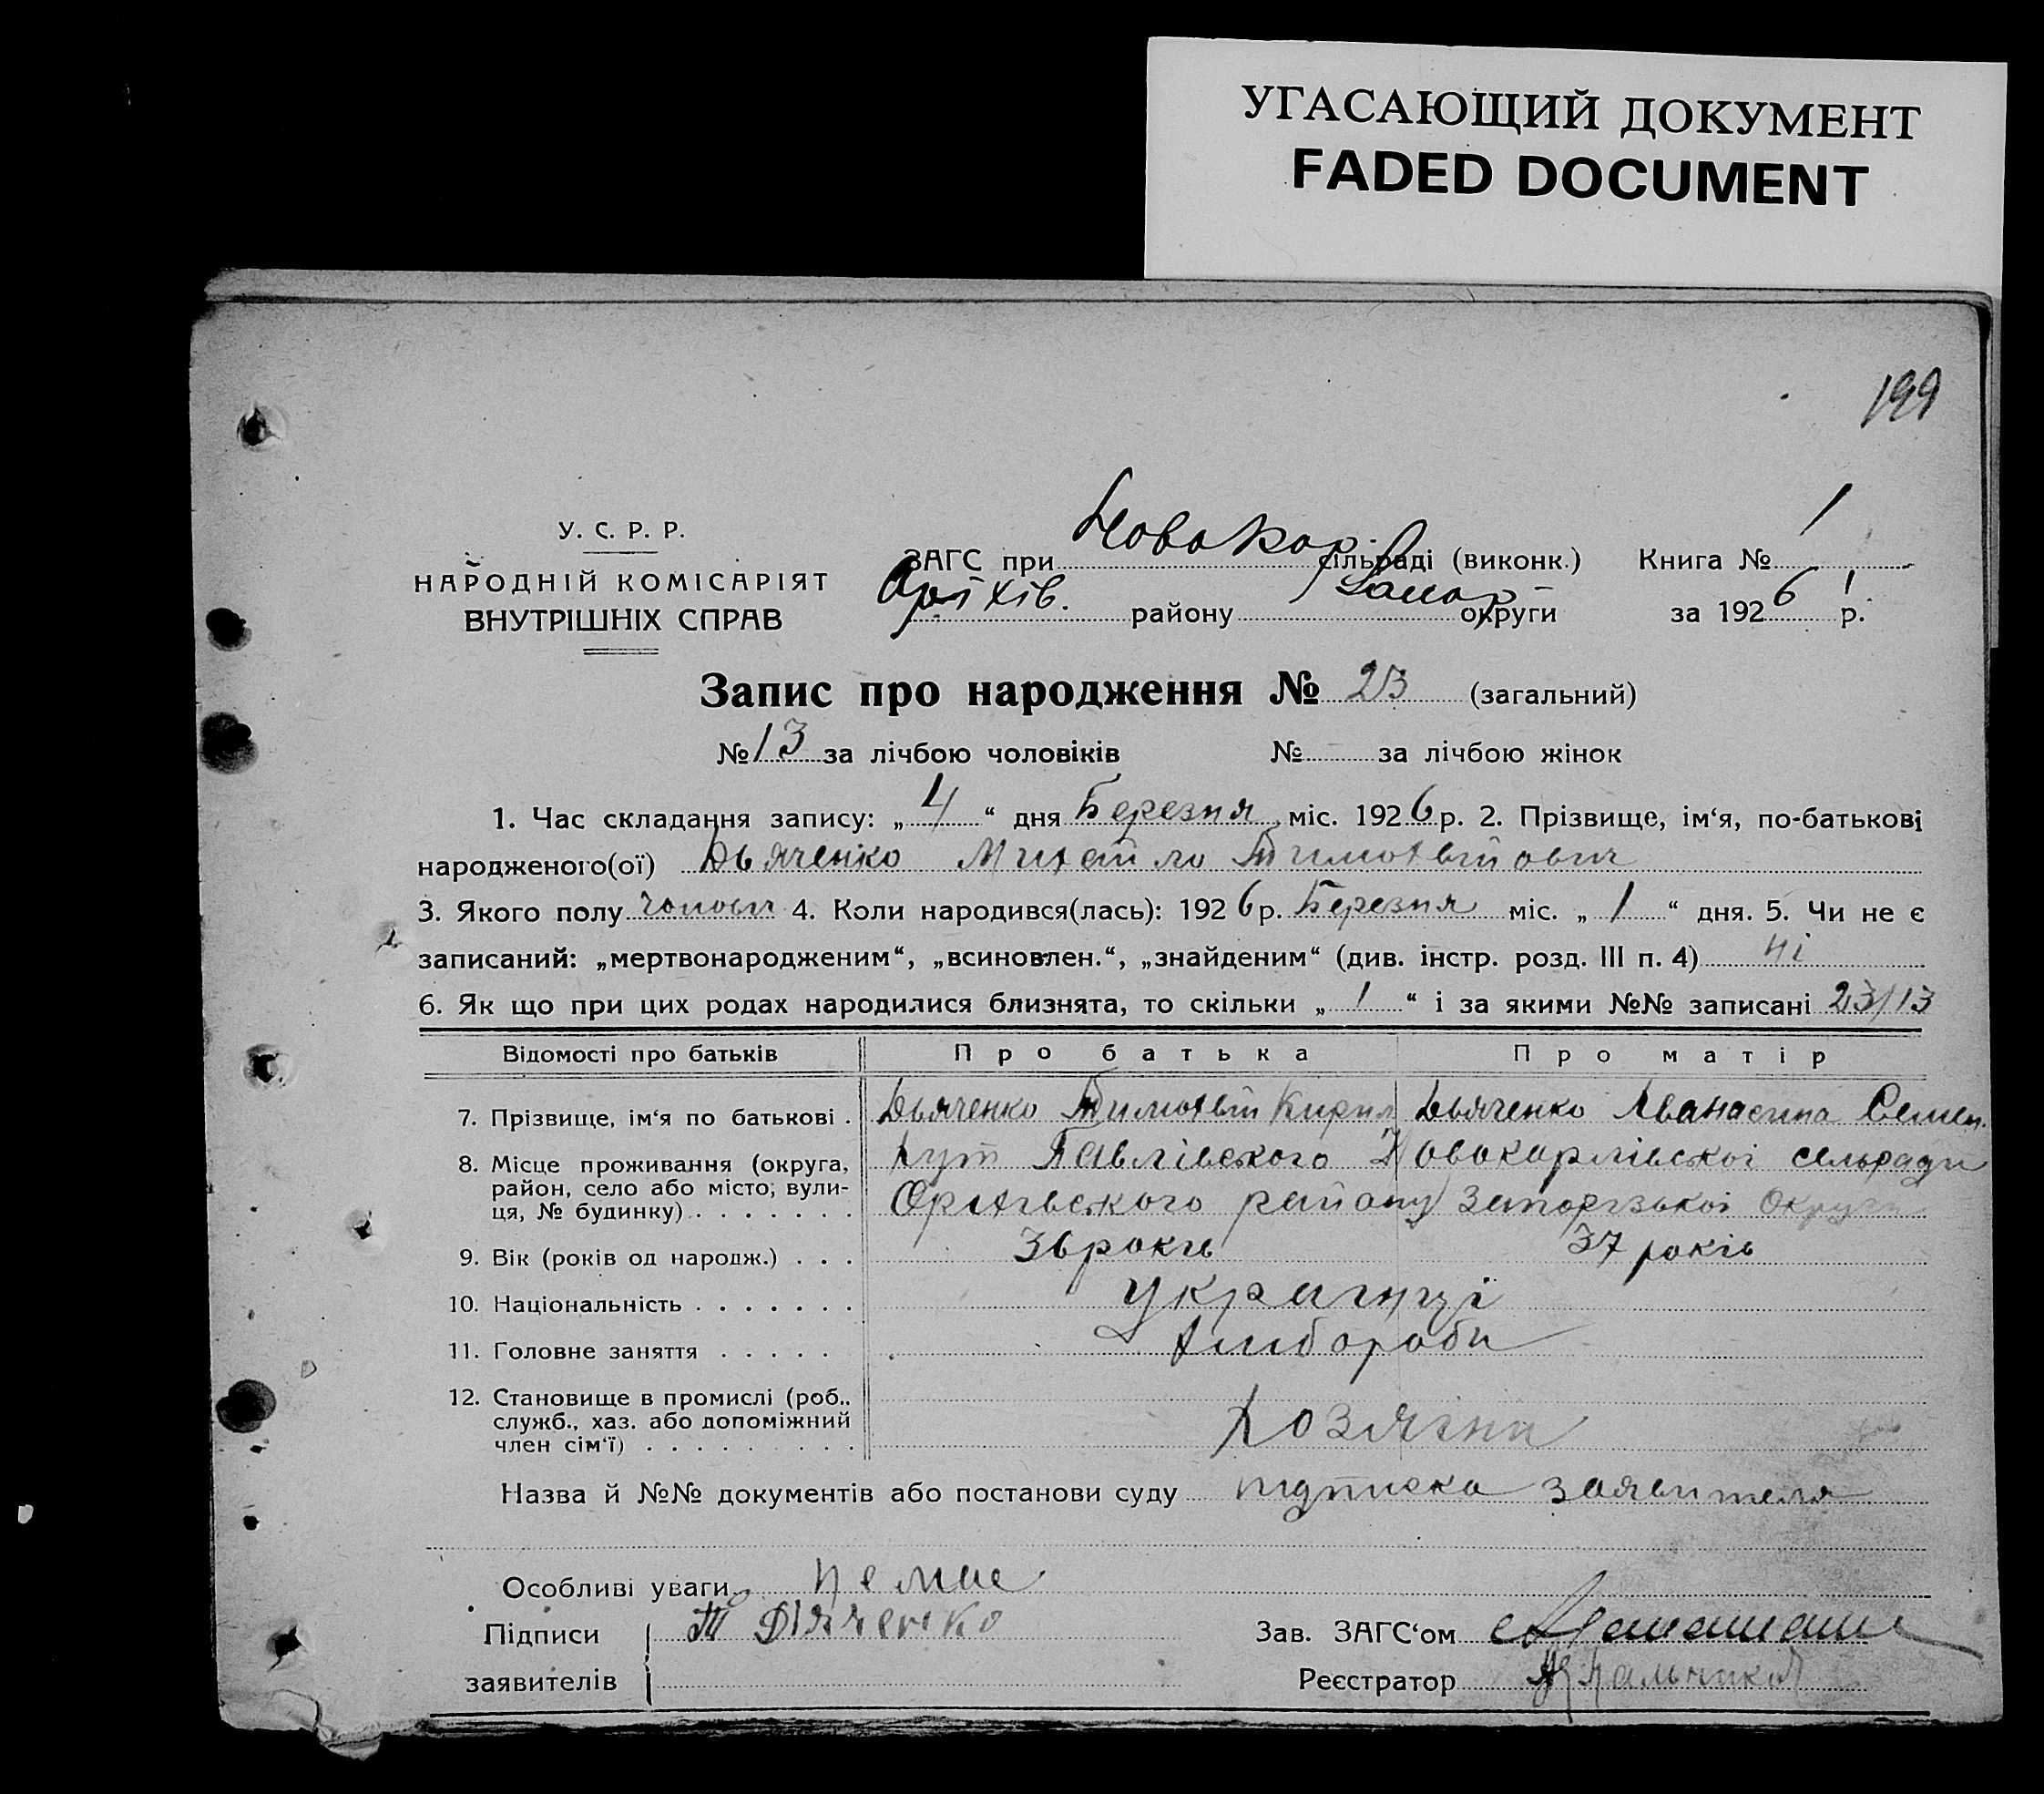 УГАСАЮЩИЙ ДОКУМЕНТ
FADED DOCUMENT
199
У. С. Р. Р.
НАРОДНІЙ КОМІСАРІЯТ
ВНУТРІШНІХ СПРАВ
ЗАГС при Новокар. сільраді (виконк.) Книга № 1
Оріхів. району Запор округи за 1926 р.
Запис про народження № 23 (загальний)
№ 13 за лічбою чоловіків № за лічбою жінок
1. Час складання запису: „4“ дня Березня міс. 1926 р. 2. Прізвище, ім‘я, по-батькові
народженого(ої) Дьяченко Михайло Тимохвійович
3. Якого полу чоловіч 4. Коли народився(лась): 1926 р. Березня міс. „1“ дня. 5. Чи не є
записаний: „мертвонародженим“, „всиновлен.“, „знайденим“ (див. інстр. розд. III п. 4) ні
6. Як що при цих родах народилися близнята, то скільки „1“ і за якими №№ записані 23/13
Відомості про батьків Про батька Про матір
7. Прізвище, ім‘я по батькові . Дьяченко Тимохвій Кирил Дьяченко Аванасина Семен.
8. Місце проживання (округа, район, село або місто; вулиця, № будинку) . . . . . . . Хут Павлівского Новокарлівскоі сельради
Оріхівского району Запорізькоі Округи
9. Вік (років од народж.) . . . 36 років 37 років
10. Національність . . . . . . . Украінці
11. Головне заняття . . . . . Хлібороби
12. Становище в промислі (роб.. служб., хаз. або допоміжний член сім‘ї) . . . . . . . . . Хозяіни
Назва й №№ документів або постанови суду підписка заявителя
Особливі уваги немає
Підписи заявителів Т Дьяченко
Зав. ЗАГС‘ом
Реєстратор